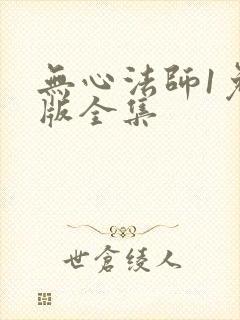 無心法師1免
版全集
世倉綾人